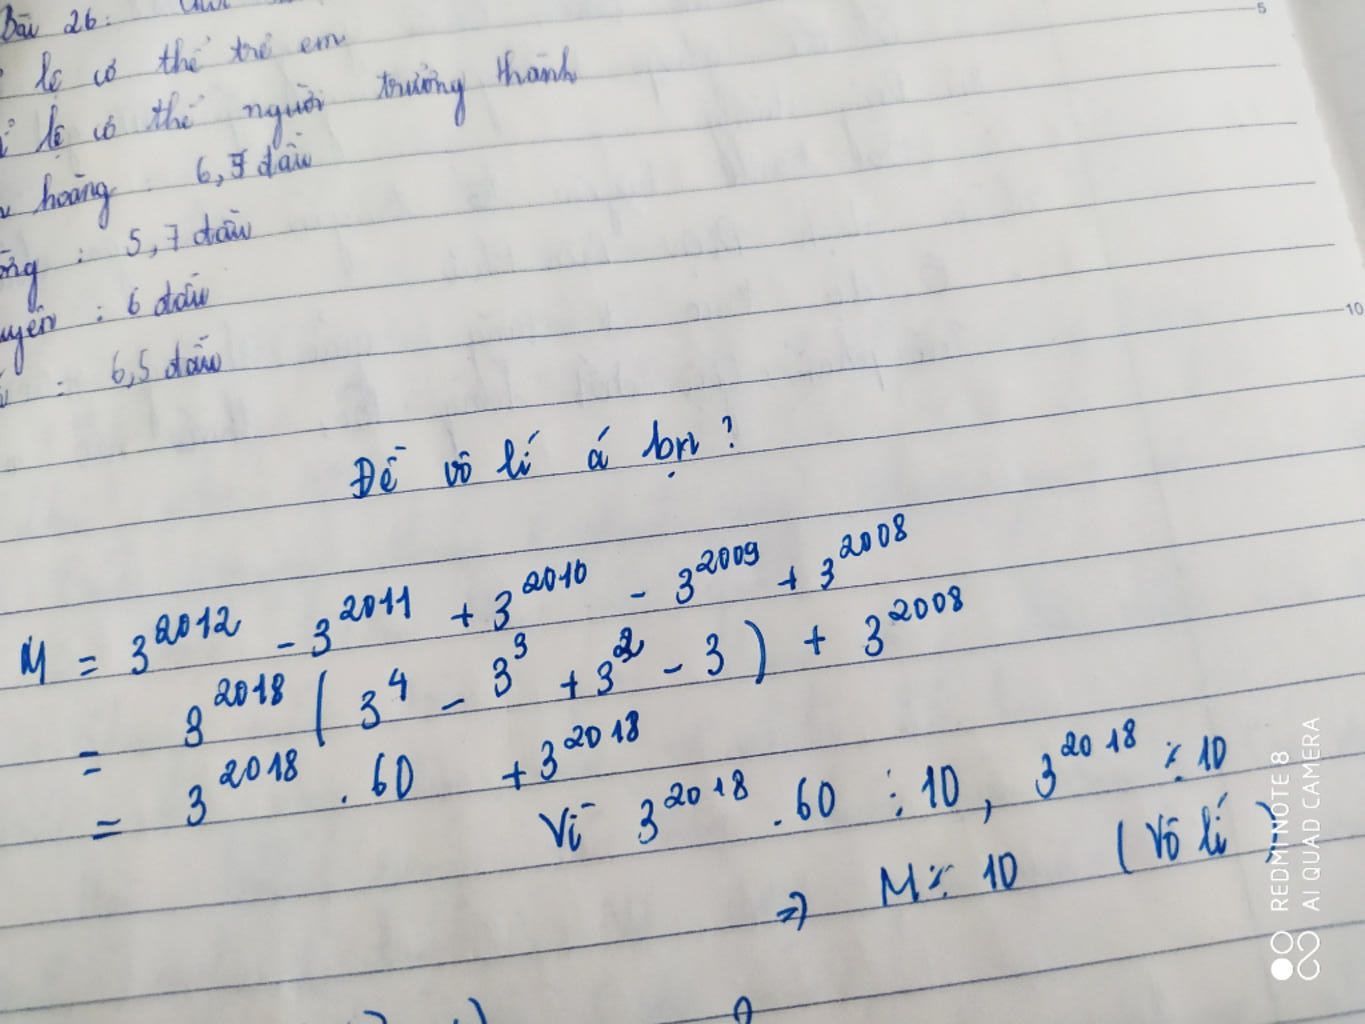 Bài 26:
lệ cơ thể trẻ em
lệ cơ thể người trưởng thành
hoàng : 6,7 đầu
: 5,7 đầu
: 6 đầu
: 6,5 đầu
5
10
Đề vô lí á bn?
M = 3^2012 - 3^2011 + 3^2010 - 3^2009 + 3^2008
= 3^2018 ( 3^4 - 3^3 + 3^2 - 3 ) + 3^2008
= 3^2018 . 60 + 3^2018
Vì 3^2018 . 60 ⋮ 10 , 3^2018 ⋮̸ 10
=> M ⋮̸ 10 ( Vô lí )
REDMI NOTE 8
AI QUAD CAMERA